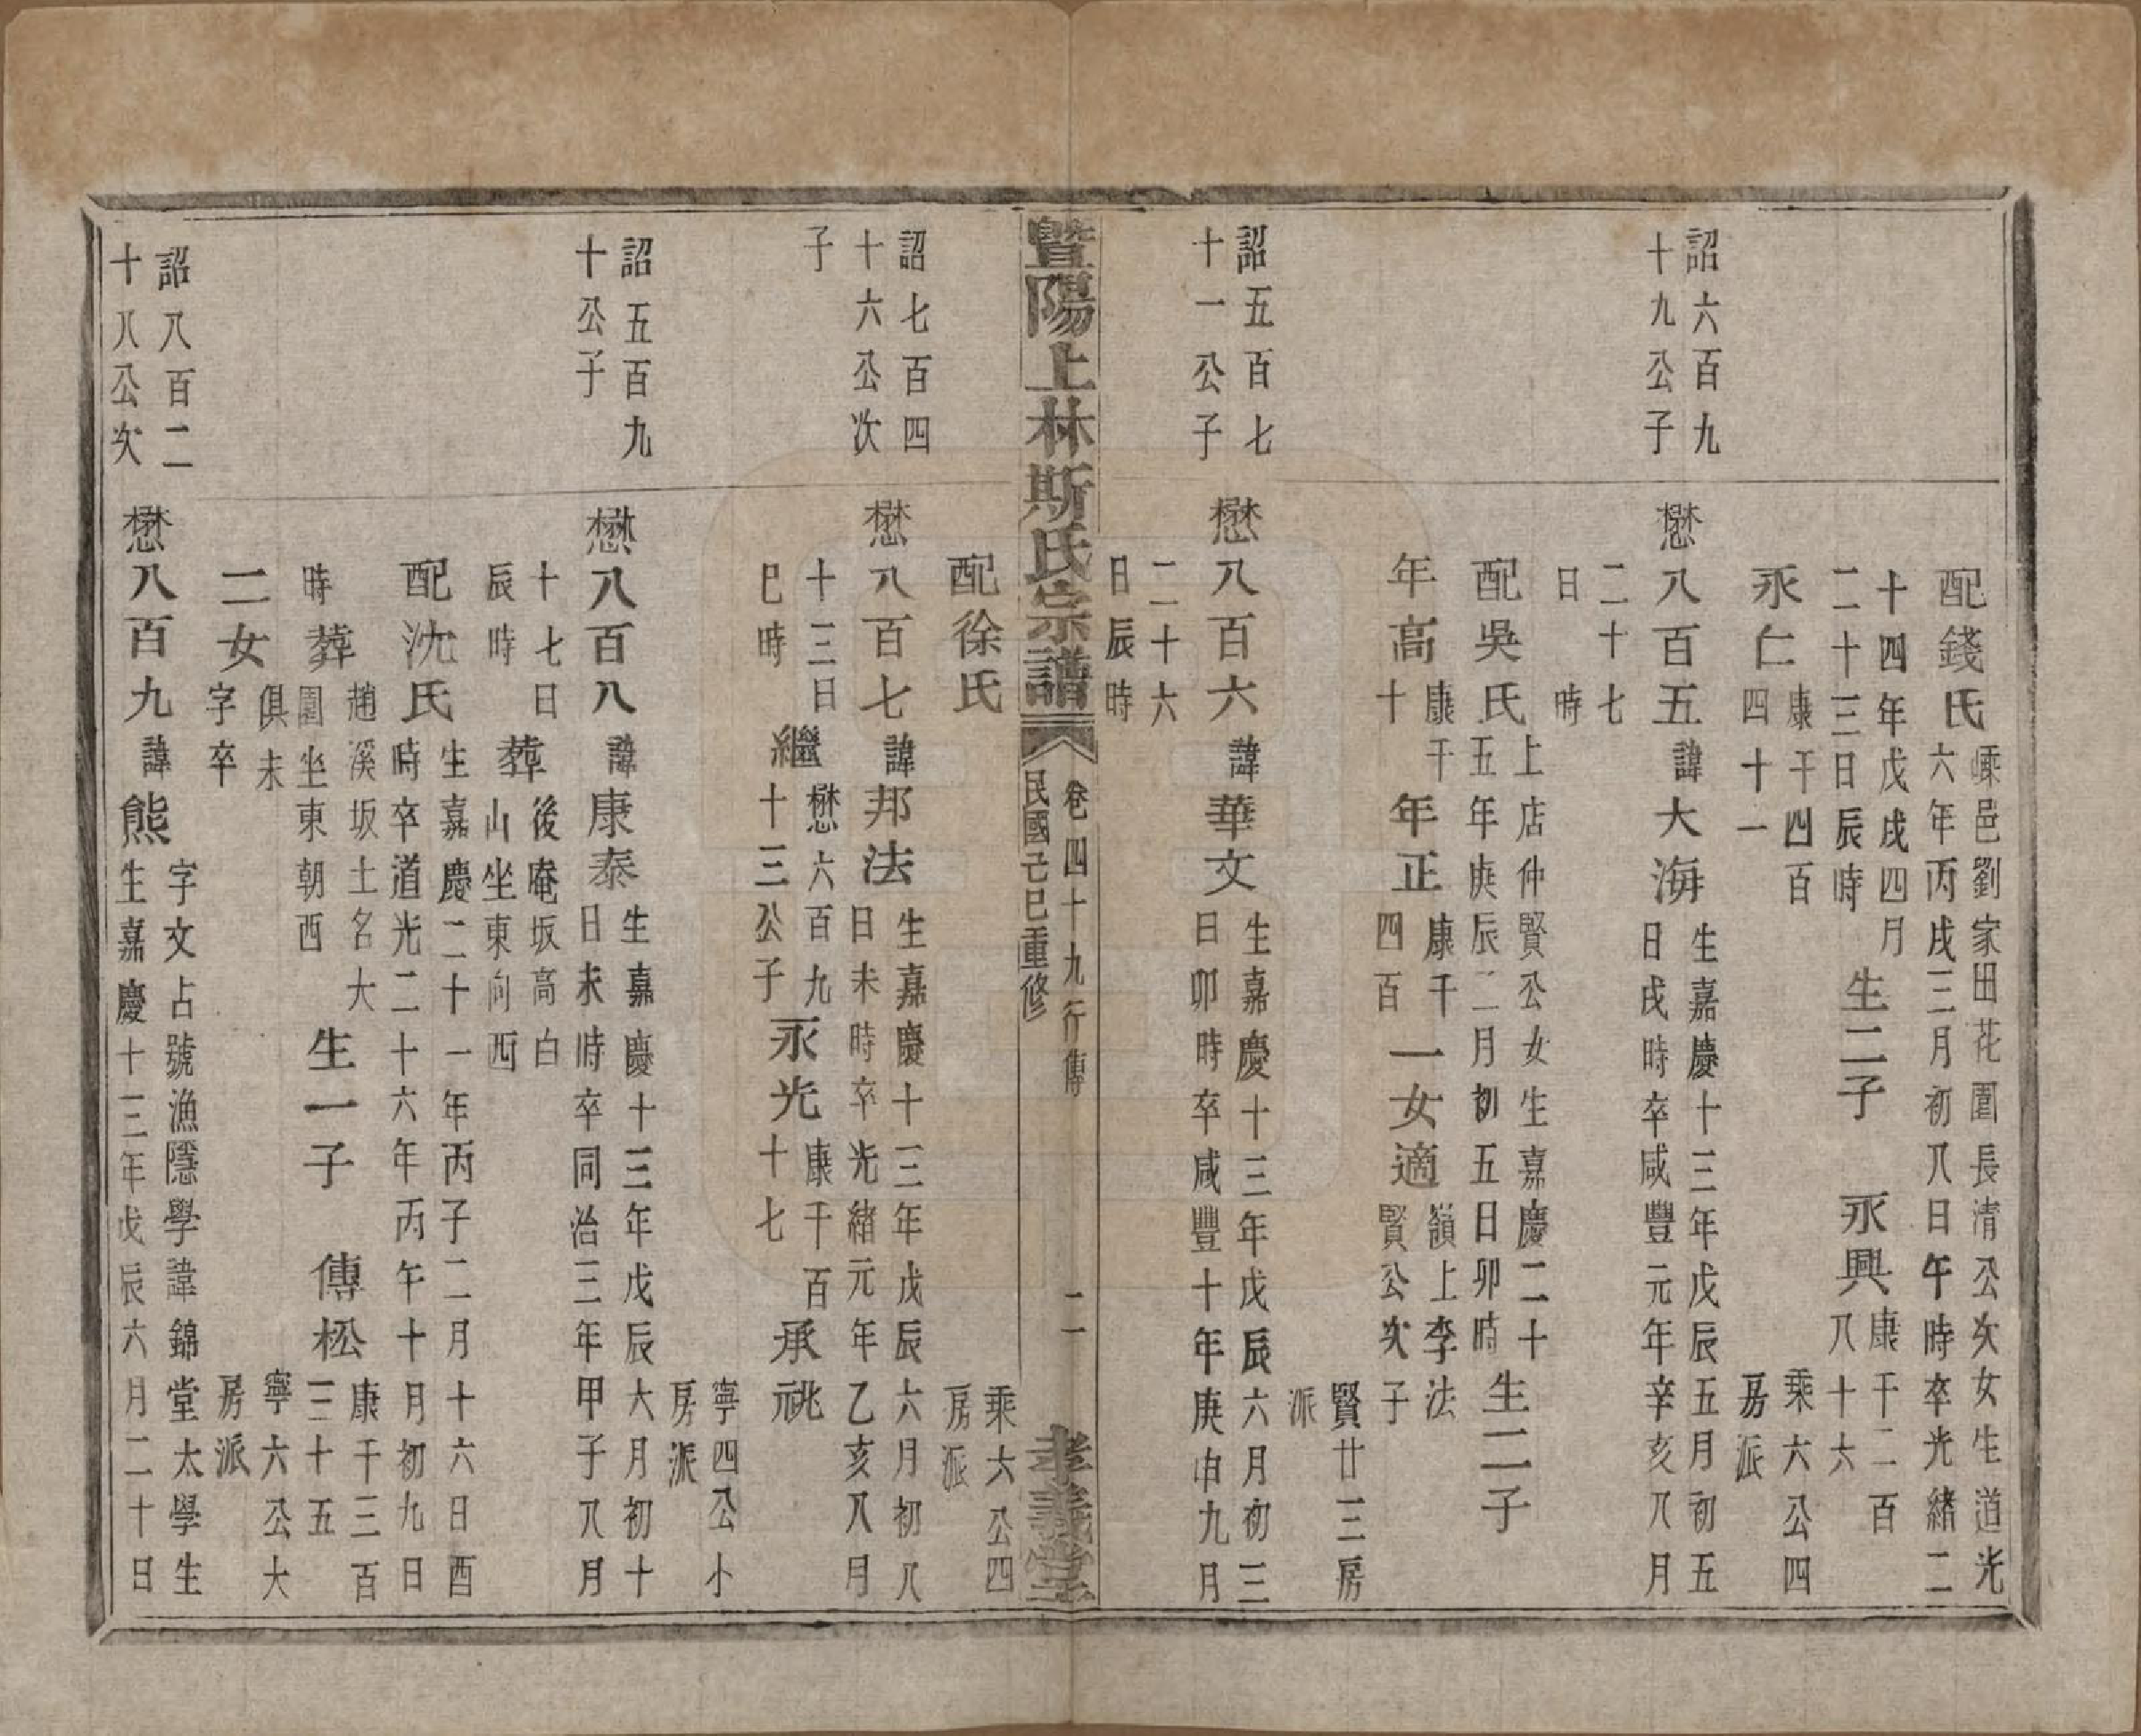 配錢氏
嵊邑劉家田花園長清公次女生道光
六年丙戌三月初八日午時卒光緒二
十四年戊戌四月
二十三日辰時
生二子
永興
康千二百
八十六
永仁
康千四百
四十一
乘六公四
房派
詔六百九
十九公子
懋八百五
諱大海
生嘉慶十三年戊辰五月初五
日戌時卒咸豐元年辛亥八月
二十七
日 時
配吳氏
上店仲賢公女生嘉慶二十
五年庚辰二月初五日卯時
生二子
年高
康千
十
年正
康千
四百
一女適
嶺上李法
賢公次子
賢廿三房
派
詔五百七
十一公子
懋八百六
諱華文
生嘉慶十三年戊辰六月初三
日卯時卒咸豐十年庚申九月
二十六
日辰時
暨陽上林斯氏宗譜
卷四十九行傳 二
民國己巳重修
孝義堂
配徐氏
乘六公四
房派
詔七百四
十六公次
子
懋八百七
諱邦法
生嘉慶十三年戊辰六月初八
日未時卒光緒元年乙亥八月
十三日
巳時
繼
懋六百九
十三公子
永光
康千百
十七
承祧
寧四公小
房派
詔五百九
十公子
懋八百八
諱康泰
生嘉慶十三年戊辰六月初十
日未時卒同治三年甲子八月
十七日
辰時
葬
後庵坂高白
山坐東向西
配沈氏
生嘉慶二十一年丙子二月十六日酉
時卒道光二十六年丙午十月初九日
時葬
趙溪坂土名大
園坐東朝西
生一子
傳松
康千三百
三十五
二女
俱未
字卒
寧六公大
房派
詔八百二
十八公次
懋八百九
諱熊
字文占號漁隱學諱錦堂太學生
生嘉慶十三年戊辰六月二十日